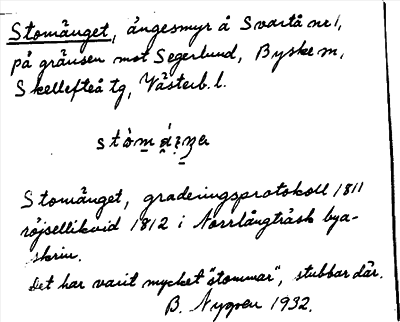 Stomänget, ängesmyr å Svartå nr 1,
på gränsen mot Segerlund, Byske sn,
Skellefteå tg, Västerb. l.
Stomänget, graderingsprotokoll 1811
röjsellikvid 1812 i Norrlångträsk bya-
skrin.
Det har varit mycket "stommar", stubbar där.
B. Nygren 1932.